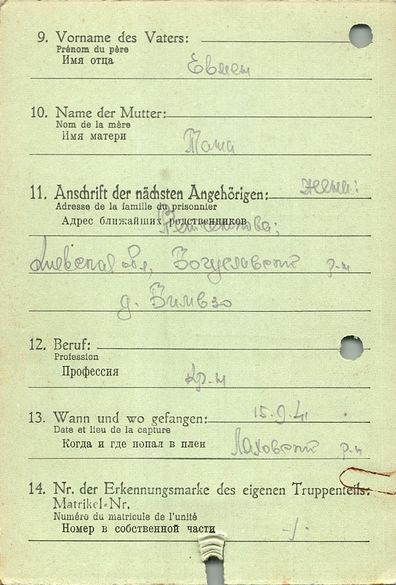 9. Vorname des Vaters:
Prénom du père
Имя отца
Евмен
10. Name der Mutter:
Nom de la mère
Имя матери
11. Anschrift der nächsten Angehörigen: жена:
Adresse de la famille du prisonnier
Адрес ближайших родственников
обл, Богуславский р-н
д.
12. Beruf:
Profession
Профессия
кр-н
13. Wann und wo gefangen: 15.9.41
Date et lieu de la capture
Когда и где попал в плен
р-н
14. Nr. der Erkennungsmarke des eigenen Truppenteils:
Matrikel-Nr.
Numéro du matricule de l'unité
Номер в собственной части